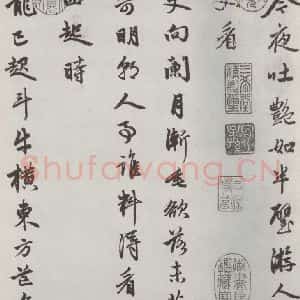 今夜吐艷如半璧游人
看
更向闌月漸垂欲落未落
奇明朝人事誰料得看
西起時
龍已起斗牛橫東方芒
Shufawang.CN